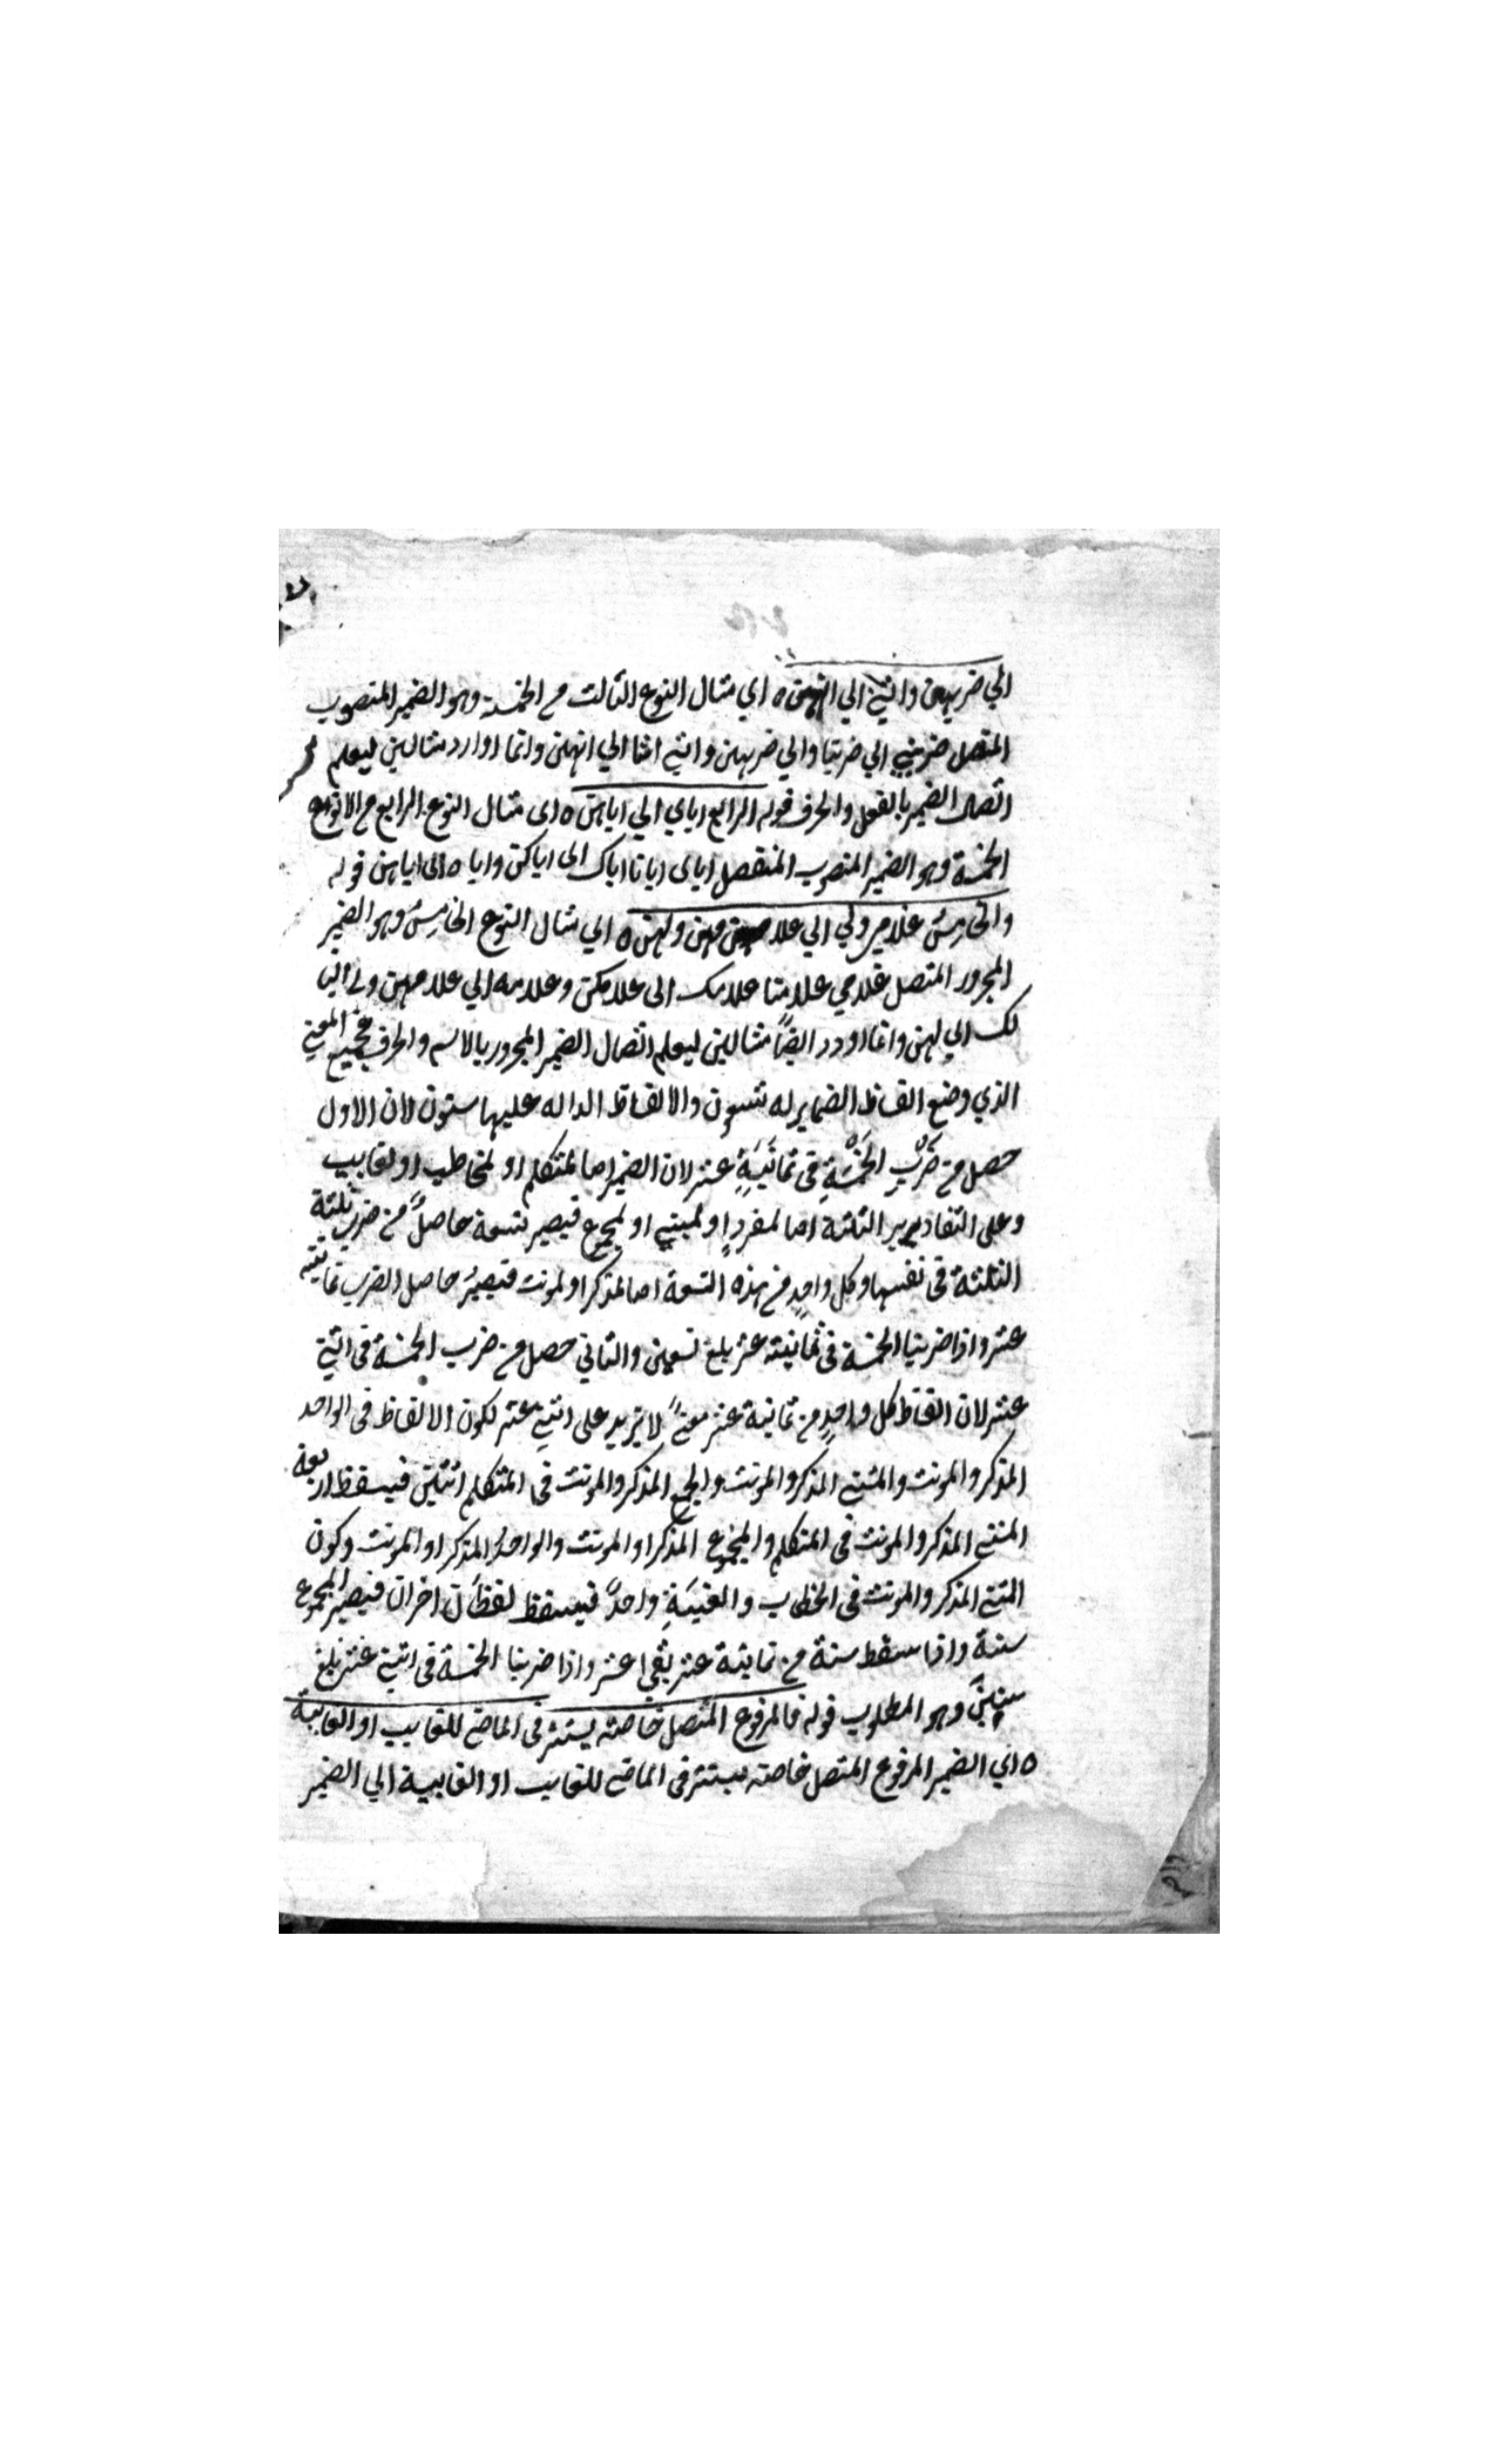 الي ضربهن وانني الي انهن ه اي مثال النوع الثالث من الخمسة وهو الضمير المنصوب
المتصل ضربني الي ضربنا والي ضربهن وانني اننا الي انهن وانما اورد مثالين ليعلم
اتصال الضمير بالفعل والحرف قوله الرابع اياي الي اياهن ه اى مثال النوع الرابع من الانواع
الخمسة وهو الضمير المنصوب المنفصل اياى ايانا اياك الى اياكن واياه الى اياهن قوله
والخامِسُ غلامي ولي الي غلامهن ولهن ه اي مثال النوع الخامِسُ وهو الضمير
المجرور المتصل غلامي غلامنا غلامك الى غلامكن وغلامه الي غلامهن ولي لنا
لك الي لهن وانما اورد ايضًا مثالين ليعلم اتصال الضمير المجرور بالاسم والحرف فجميع المعني
الذي وضع الفاظ الضماير له تسعون والالفاظ الداله عليها ستون لان الاول
حصل من ضَرْبِ الخَمْسَةِ في ثمانَيَةِ عشر لان الضمير اما لمتكلم او لمخاطب او لغايب
وعلى التقادير الثلثة اما لمفردٍ او لمثني او لمجموع فيصير تسعة حاصلً من ضرب ثلثة
الثلثة في نفسها وكل واحدٍ من هذه التسعة اما لمذكر او لمونث فيصيرُ حاصل الضرب ثمانية
عشر واذا ضربنا الخمسة في ثمانية عشر بلغ تسعين والثاني حصل من ضرب الخمسة في اثني
عشر لان الفاظ كل واحدٍ من ثمانية عشر معنيً لا تزيد على اثني عشر لكون الالفاظ في الواحد
المذكر والمونث والمثنى المذكر والمونث والجمع المذكر والمونث في المتكلم اثنين فيسقط اربعة
المثنى المذكر والمونث في المتكلم والمجموع المذكر او المونث والواحد المذكر او المونث وكون
المثنى المذكر والمونث في الخطاب والغيبَةِ واحدً فيسقط لفظان اخران فيصير المجموع
ستة واذا سقط ستة من ثمانية عشر بقي اعشر واذا ضربنا الخمسة في اثني عشر بلغ
ستين وهو المطلوب قوله فالمرفوع المتصل خاصة يستتر في الماضي للغايب او الغايبة
ه اي الضمير المرفوع المتصل خاصة يستتر في الماضي للغايب او الغايبة اي الضمير